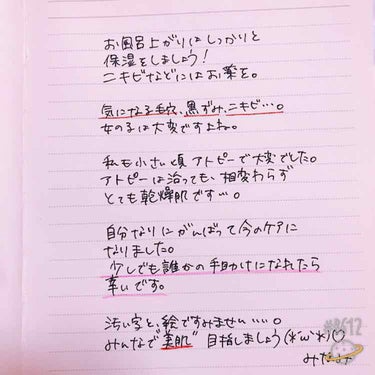 お風呂上がりはしっかりと
保湿をしましょう!
ニキビなどにはお薬を。
気になる毛穴、黒ずみ、ニキビ…。
女の子は大変ですよね。
私も小さい頃アトピーで大変でした。
アトピーは治っても、相変わらず
とても乾燥肌です…。
自分なりにがんばって今のケアに
なりました。
少しでも誰かの手助けになれたら
幸いです。
汚い字と、絵ですみません….。
みんなで"美肌"目指しましょう(*´ω`*)♡
#B612